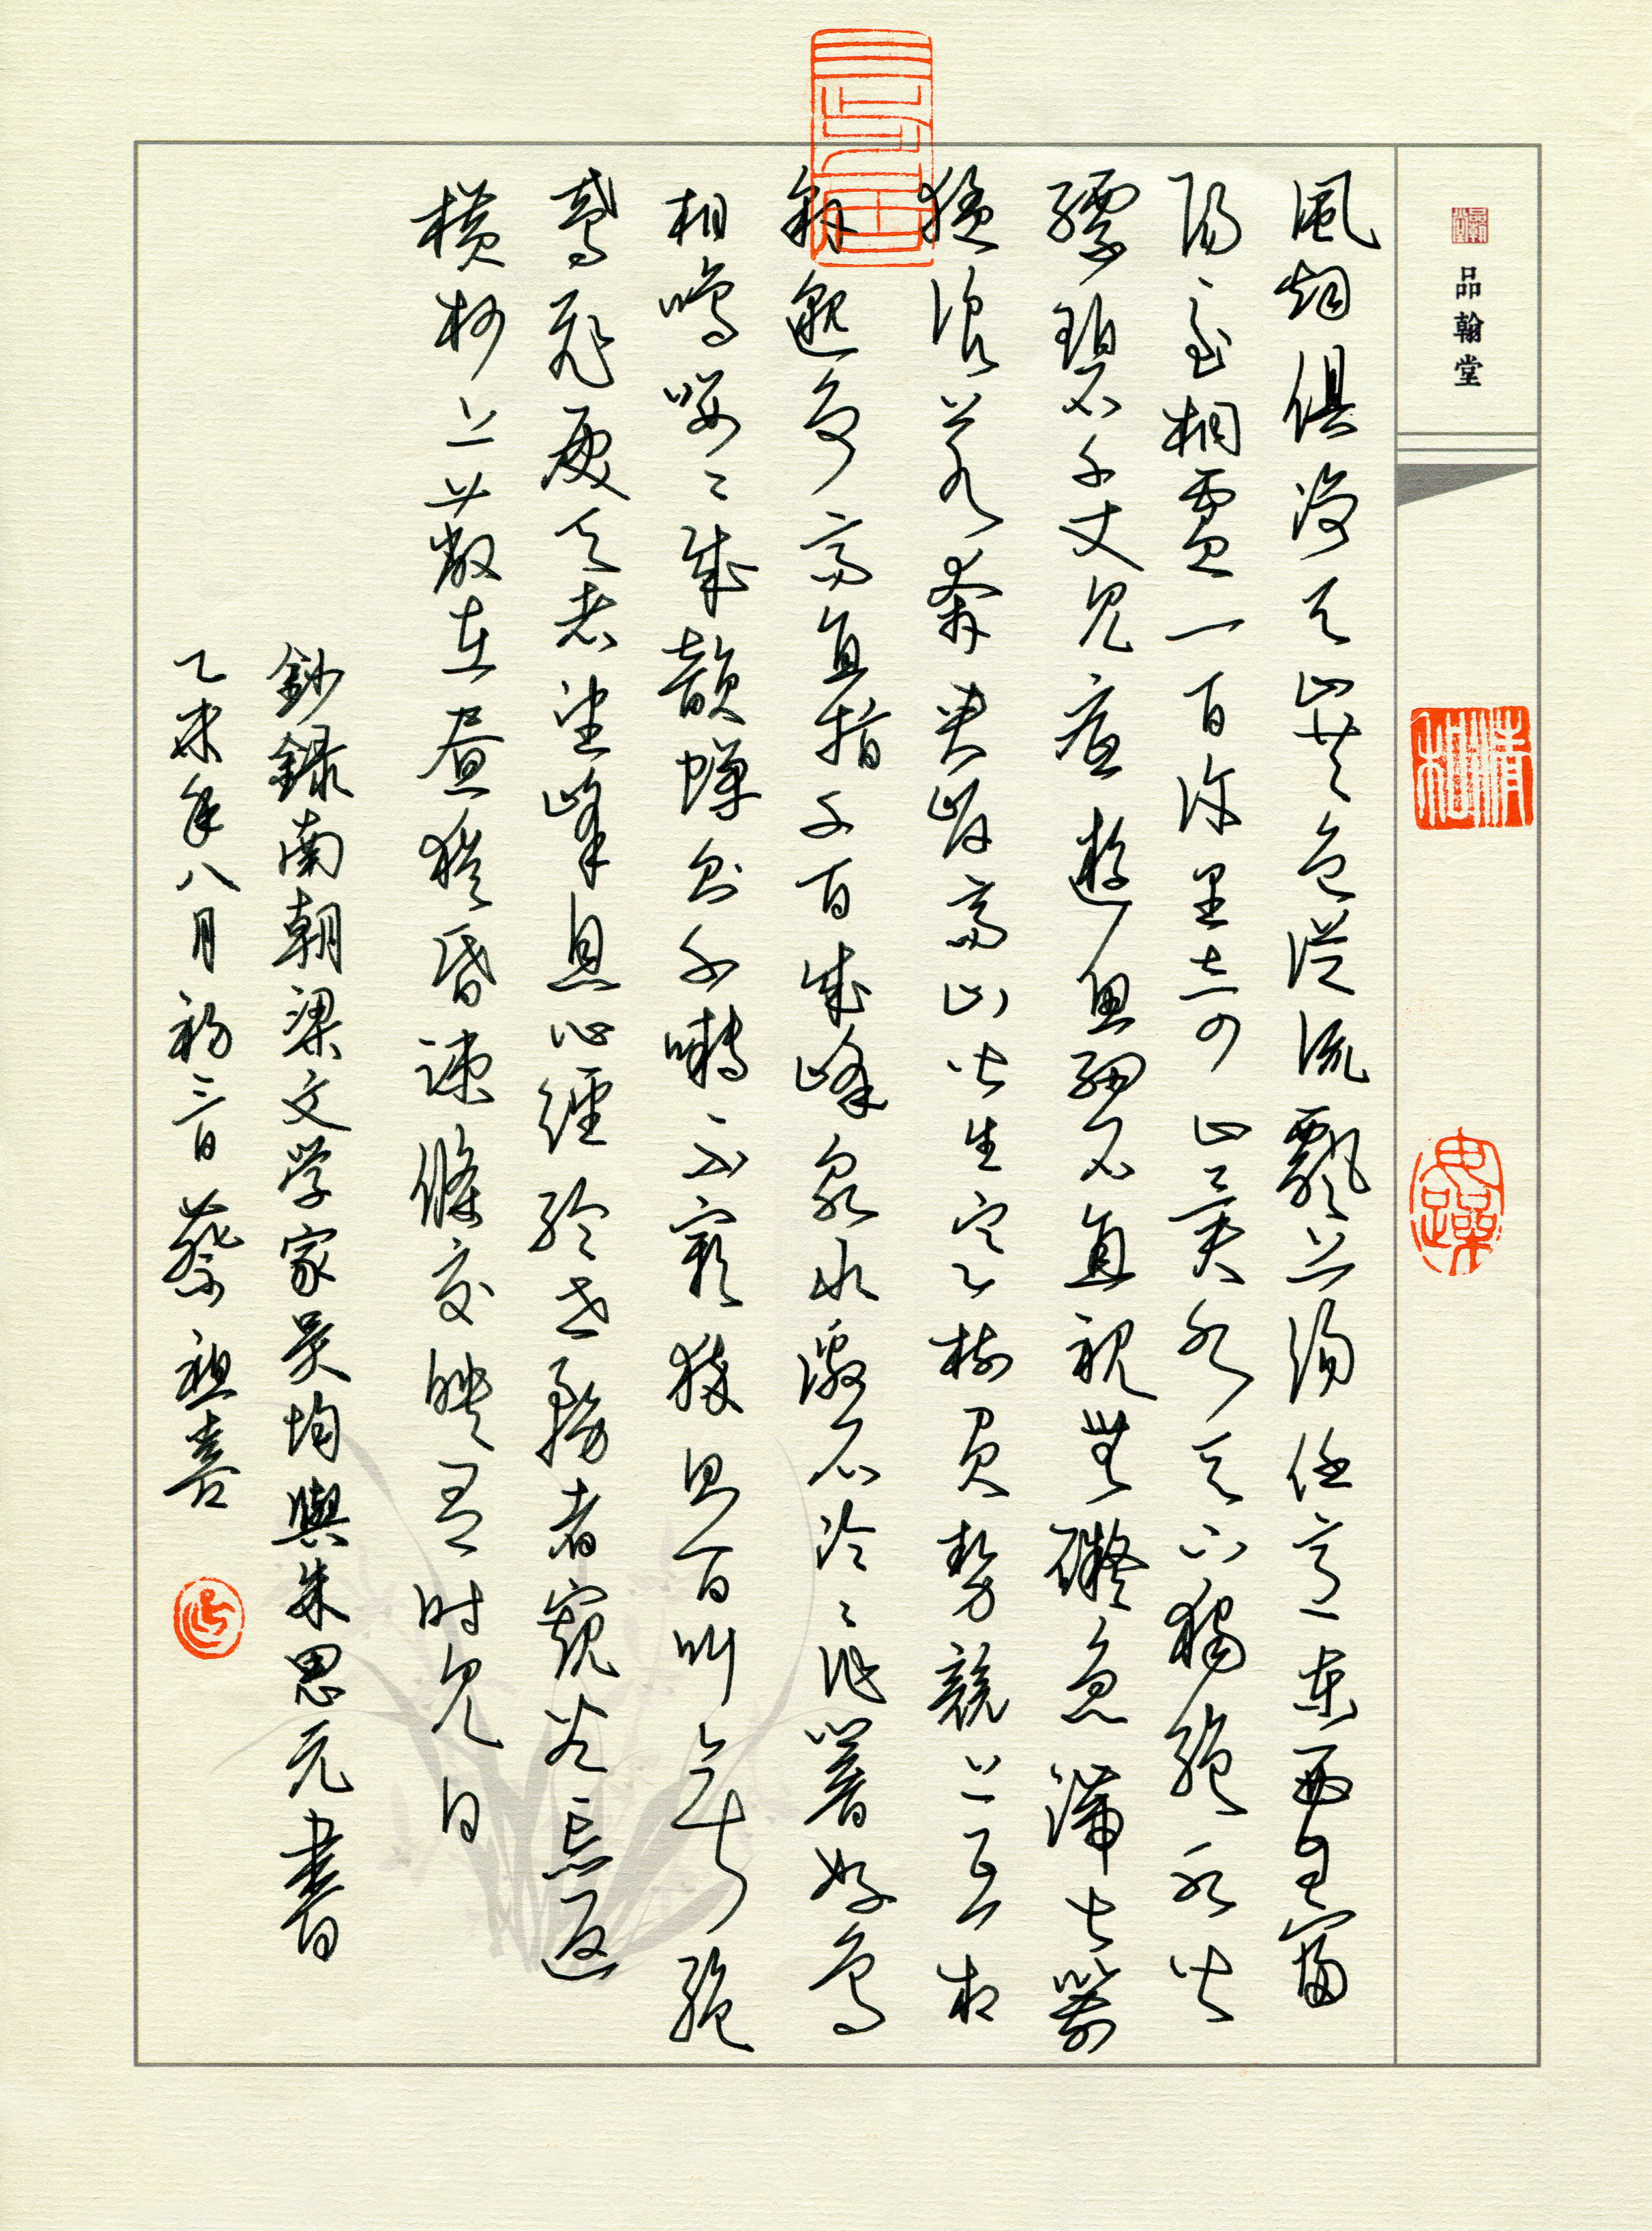 品翰堂
風烟俱淨天山共色從流飄蕩任意東西自富
陽至桐廬一百許里奇山異水天下獨絕水皆
縹碧千丈見底遊魚細石直視無礙急湍甚箭
猛浪若奔夾岸高山皆生寒樹負勢競上互相
軒邈爭高直指千百成峰泉水激石泠〻作響好鳥
相鳴嚶〻成韻蟬則千囀不窮猿則百叫無絕
鳶飛戾天者望峰息心經綸世務者窺谷忘返
橫柯上蔽在晝猶昏疎條交映有時見日
鈔錄南朝梁文学家吴均與朱思元書
乙未年八月初三日蔡祖
清和
毋躁